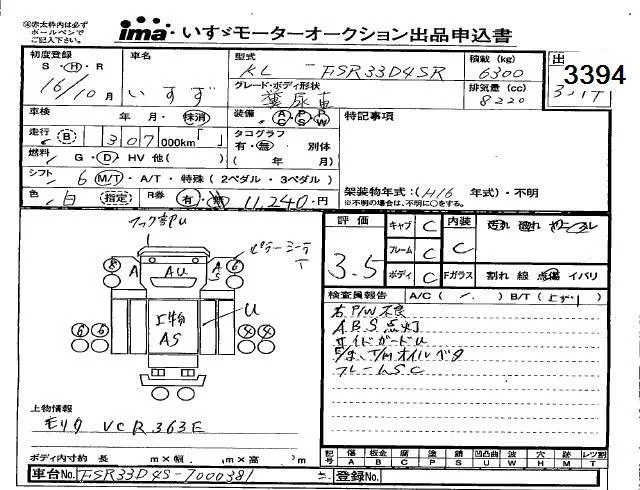 ㊟赤太枠内は必ず
ボールペンで
ご記入下さい。
ima いすゞモーターオークション出品申込書
初度登録
S・H・R
16/10月
車名
いすず
型式
KL - FSR33D4SR
積載 (kg)
6300
出
3394
グレード・ボディ形状
糞尿車
排気量 (cc)
8220
車検 年 月・抹消
装備 AC PS PW
特記事項
走行 B 307,000km「 」
タコグラフ
有・無 別体
燃料 G・D・HV 他( )
( 年 月)
シフト 6 M/T・A/T・特殊(2ペダル・3ペダル)
色 白 指定 R券 有・無 11,240-円
架装物年式:(H16 年式)・不明
※不明の場合は、不明に○をする。
フック部U
評価
3.5
キャブ C
フレーム C
ボディ C
内装
C
汚れ 破れ
Fガラス 割れ 線 点傷 イバリ
検査員報告 A/C( ) B/T( )
右P/W不良
A.B.S点灯
サイドガードU
E/ま、T/Mオイルベタ
フレームSC
8 A AU A S 6
上物
AS
U
6 6 4 4
上物情報
モリタ VCR363E
ボディ内寸約 長 m×幅 m×高 m
記号 傷 A 板金 B 腐 C 塗 P 錆 S 凹凸曲 U 波 W 穴 H 跡 M レンズ割 T
車台No. FSR33D4S-7000381
登録No.